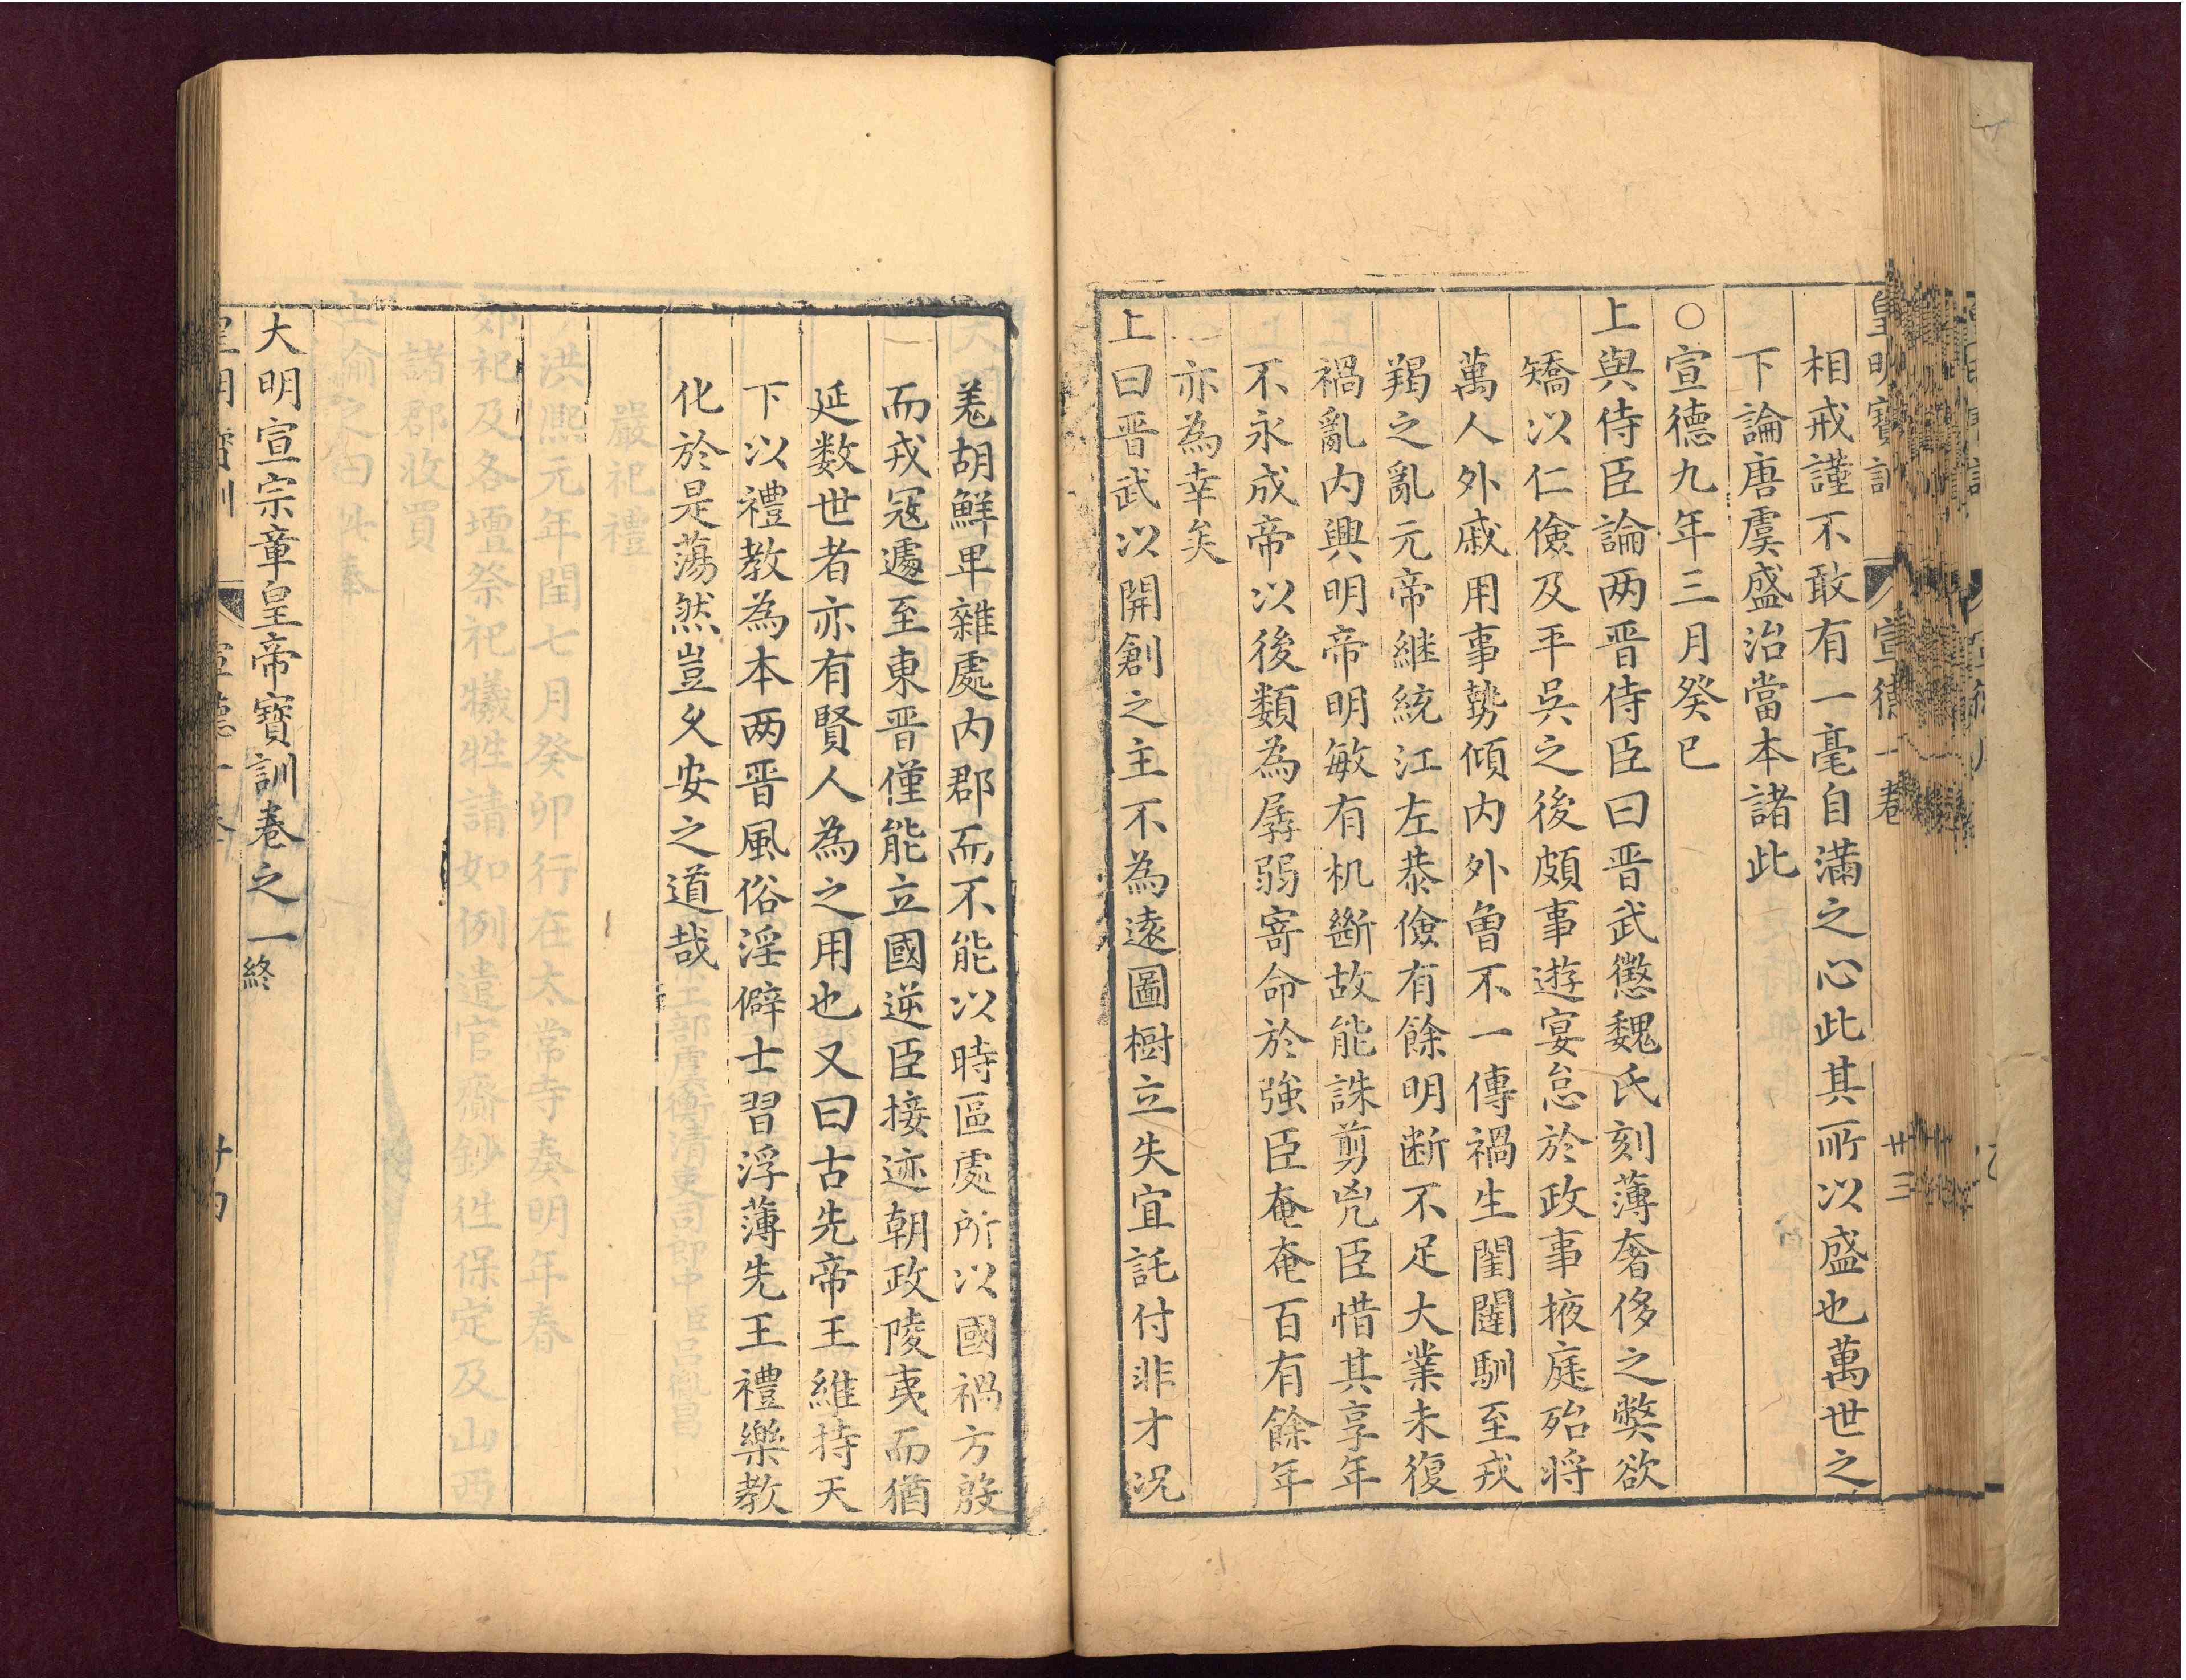 皇明寳訓 宣德一卷 廿三
相戒謹不敢有一毫自滿之心此其所以盛也萬世之
下論唐虞盛治當本諸此
○宣德九年三月癸巳
上與侍臣論两晋侍臣曰晋武懲魏氏刻薄奢侈之獘欲
矯以仁儉及平吳之後頗事遊宴怠於政事掖庭殆将
萬人外戚用事勢傾内外曾不一傳禍生閨闥馴至戎
羯之亂元帝継統江左恭儉有餘明断不足大業未復
禍亂内興明帝明敏有机斷故能誅剪兇臣惜其享年
不永成帝以後類為孱弱寄命於強臣奄奄百有餘年
亦為幸矣
上曰晋武以開創之主不為遠圖樹立失宜託付非才况
羗胡鮮卑雜處内郡而不能以時區處所以國禍方殷
而戎寇遽至東晋僅能立國逆臣接迹朝政陵夷而猶
延数世者亦有賢人為之用也又曰古先帝王維持天
下以禮教為本两晋風俗淫僻士習浮薄先王禮樂教
化於是蕩然豈乆安之道哉
大明宣宗章皇帝寳訓卷之一終